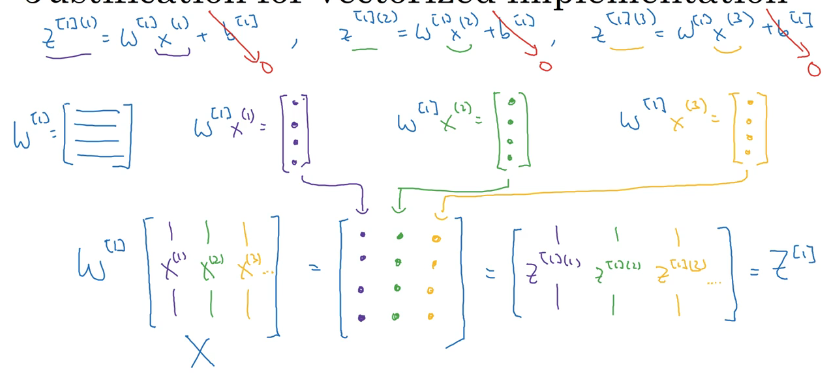 Justification for vectorized implementation
z^{[1](1)} = W^{[1]} x^{(1)} + b^{[1]} , z^{[1](2)} = W^{[1]} x^{(2)} + b^{[1]} , z^{[1](3)} = W^{[1]} x^{(3)} + b^{[1]}
0 0 0
W^{[1]} = [ ] W^{[1]} x^{(1)} = [ ] W^{[1]} x^{(2)} = [ ] W^{[1]} x^{(3)} = [ ]
W^{[1]} [ x^{(1)} x^{(2)} x^{(3)} ... ] = [ ] = [ z^{[1](1)} z^{[1](2)} z^{[1](3)} .... ] = Z^{[1]}
X